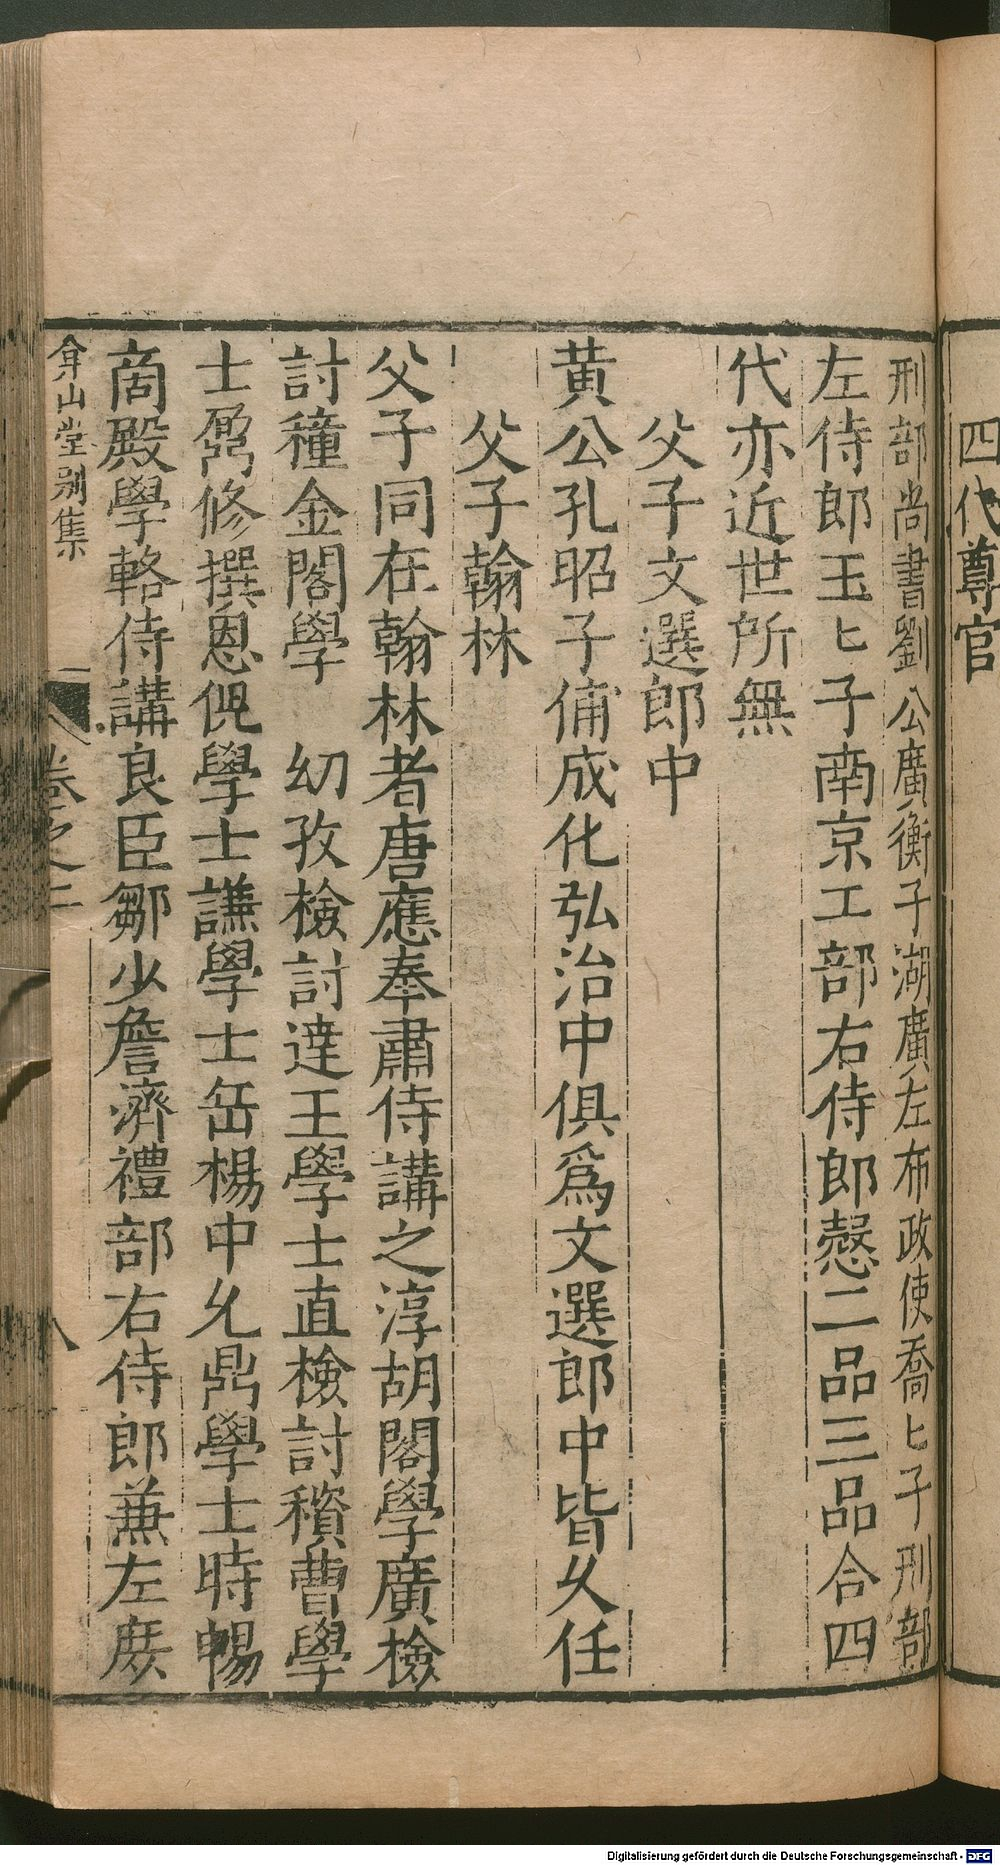 四代尊官
刑部尚書劉公廣衡子湖廣左布政使喬匕子刑部
左侍郎玉匕子南京工部右侍郎慤二品三品合四
代亦近世所無
父子文選郎中
黃公孔昭子俌成化弘治中俱爲文選郎中皆久任
父子翰林
父子同在翰林者唐應奉肅侍講之淳胡閣學廣檢
討穜金閣學 幼孜檢討達王學士直檢討積曹學
士鼐修撰恩倪學士謙學士岳楊中允鼎學士時暢
商殿學輅侍講良臣鄒少詹濟禮部右侍郎兼左庶
弇山堂别集
卷之二
八
Digitalisierung gefördert durch die Deutsche Forschungsgemeinschaft - DFG